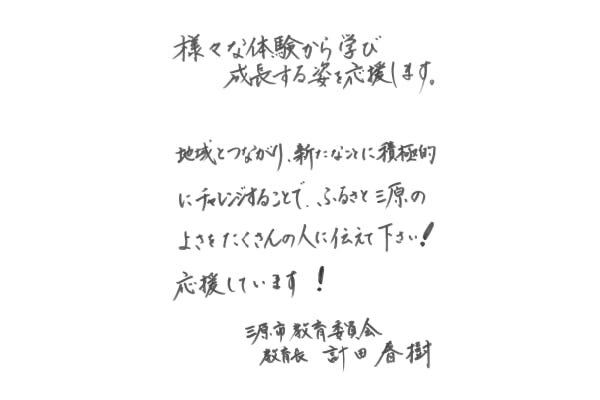 様々な体験から学び
成長する姿を応援します。
地域とつながり、新たなことに積極的
にチャレンジすることで、ふるさと三原の
よさをたくさんの人に伝えて下さい!
応援しています!
三原市教育委員会
教育長 計田春樹